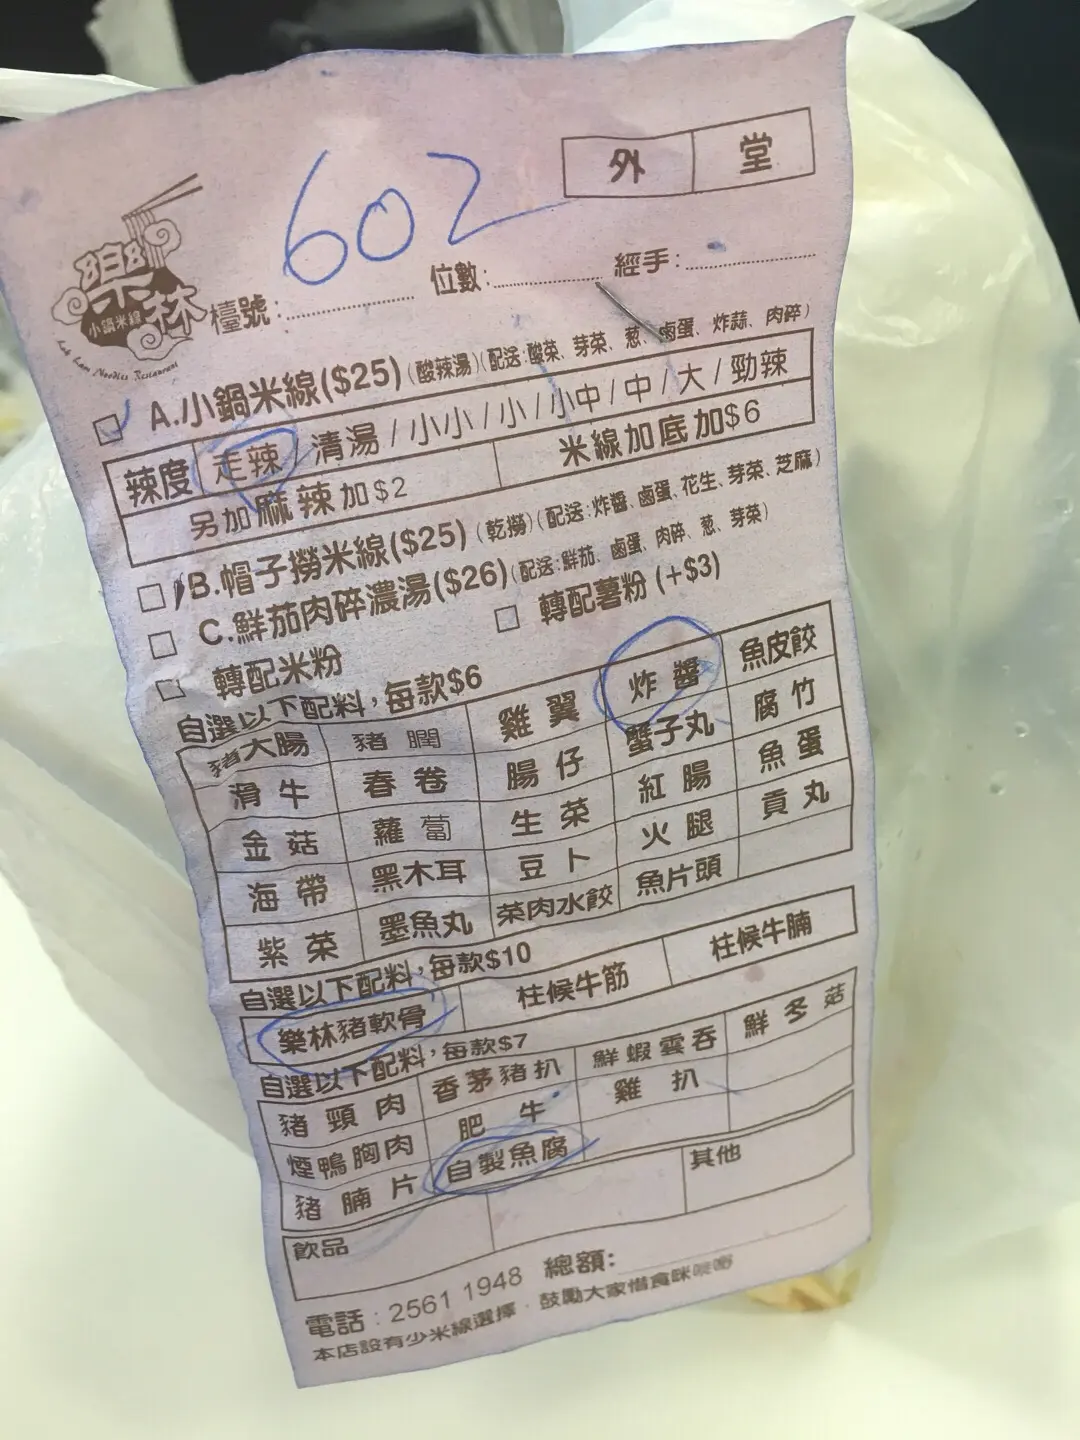 外 堂
602
樂林
小鍋米線
Luk Lam Noodles Restaurant
檯號: 位數: 經手:
A.小鍋米線($25)(酸辣湯)(配送:酸菜、芽菜、葱、鹵蛋、炸蒜、肉碎)
辣度 走辣/清湯/小小/小/小中/中/大/勁辣
另加麻辣加$2 米線加底加$6
B.帽子撈米線($25)(乾撈)(配送:炸醬、鹵蛋、花生、芽菜、芝麻)
C.鮮茄肉碎濃湯($26)(配送:鮮茄、鹵蛋、肉碎、葱、芽菜)
轉配米粉 轉配薯粉(+$3)
自選以下配料,每款$6
豬大腸 豬膶 雞翼 炸醬 魚皮餃
滑牛 春卷 腸仔 蟹子丸 腐竹
金菇 蘿蔔 生菜 紅腸 魚蛋
海帶 黑木耳 豆卜 火腿 貢丸
紫菜 墨魚丸 菜肉水餃 魚片頭
自選以下配料,每款$10
樂林豬軟骨 柱候牛筋 柱候牛腩
自選以下配料,每款$7
豬頸肉 香茅豬扒 鮮蝦雲吞 鮮冬菇
煙鴨胸肉 肥牛 雞扒
豬腩片 自製魚腐
飲品 其他
電話:2561 1948 總額:
本店設有少米線選擇.鼓勵大家惜食咪嘥嘢